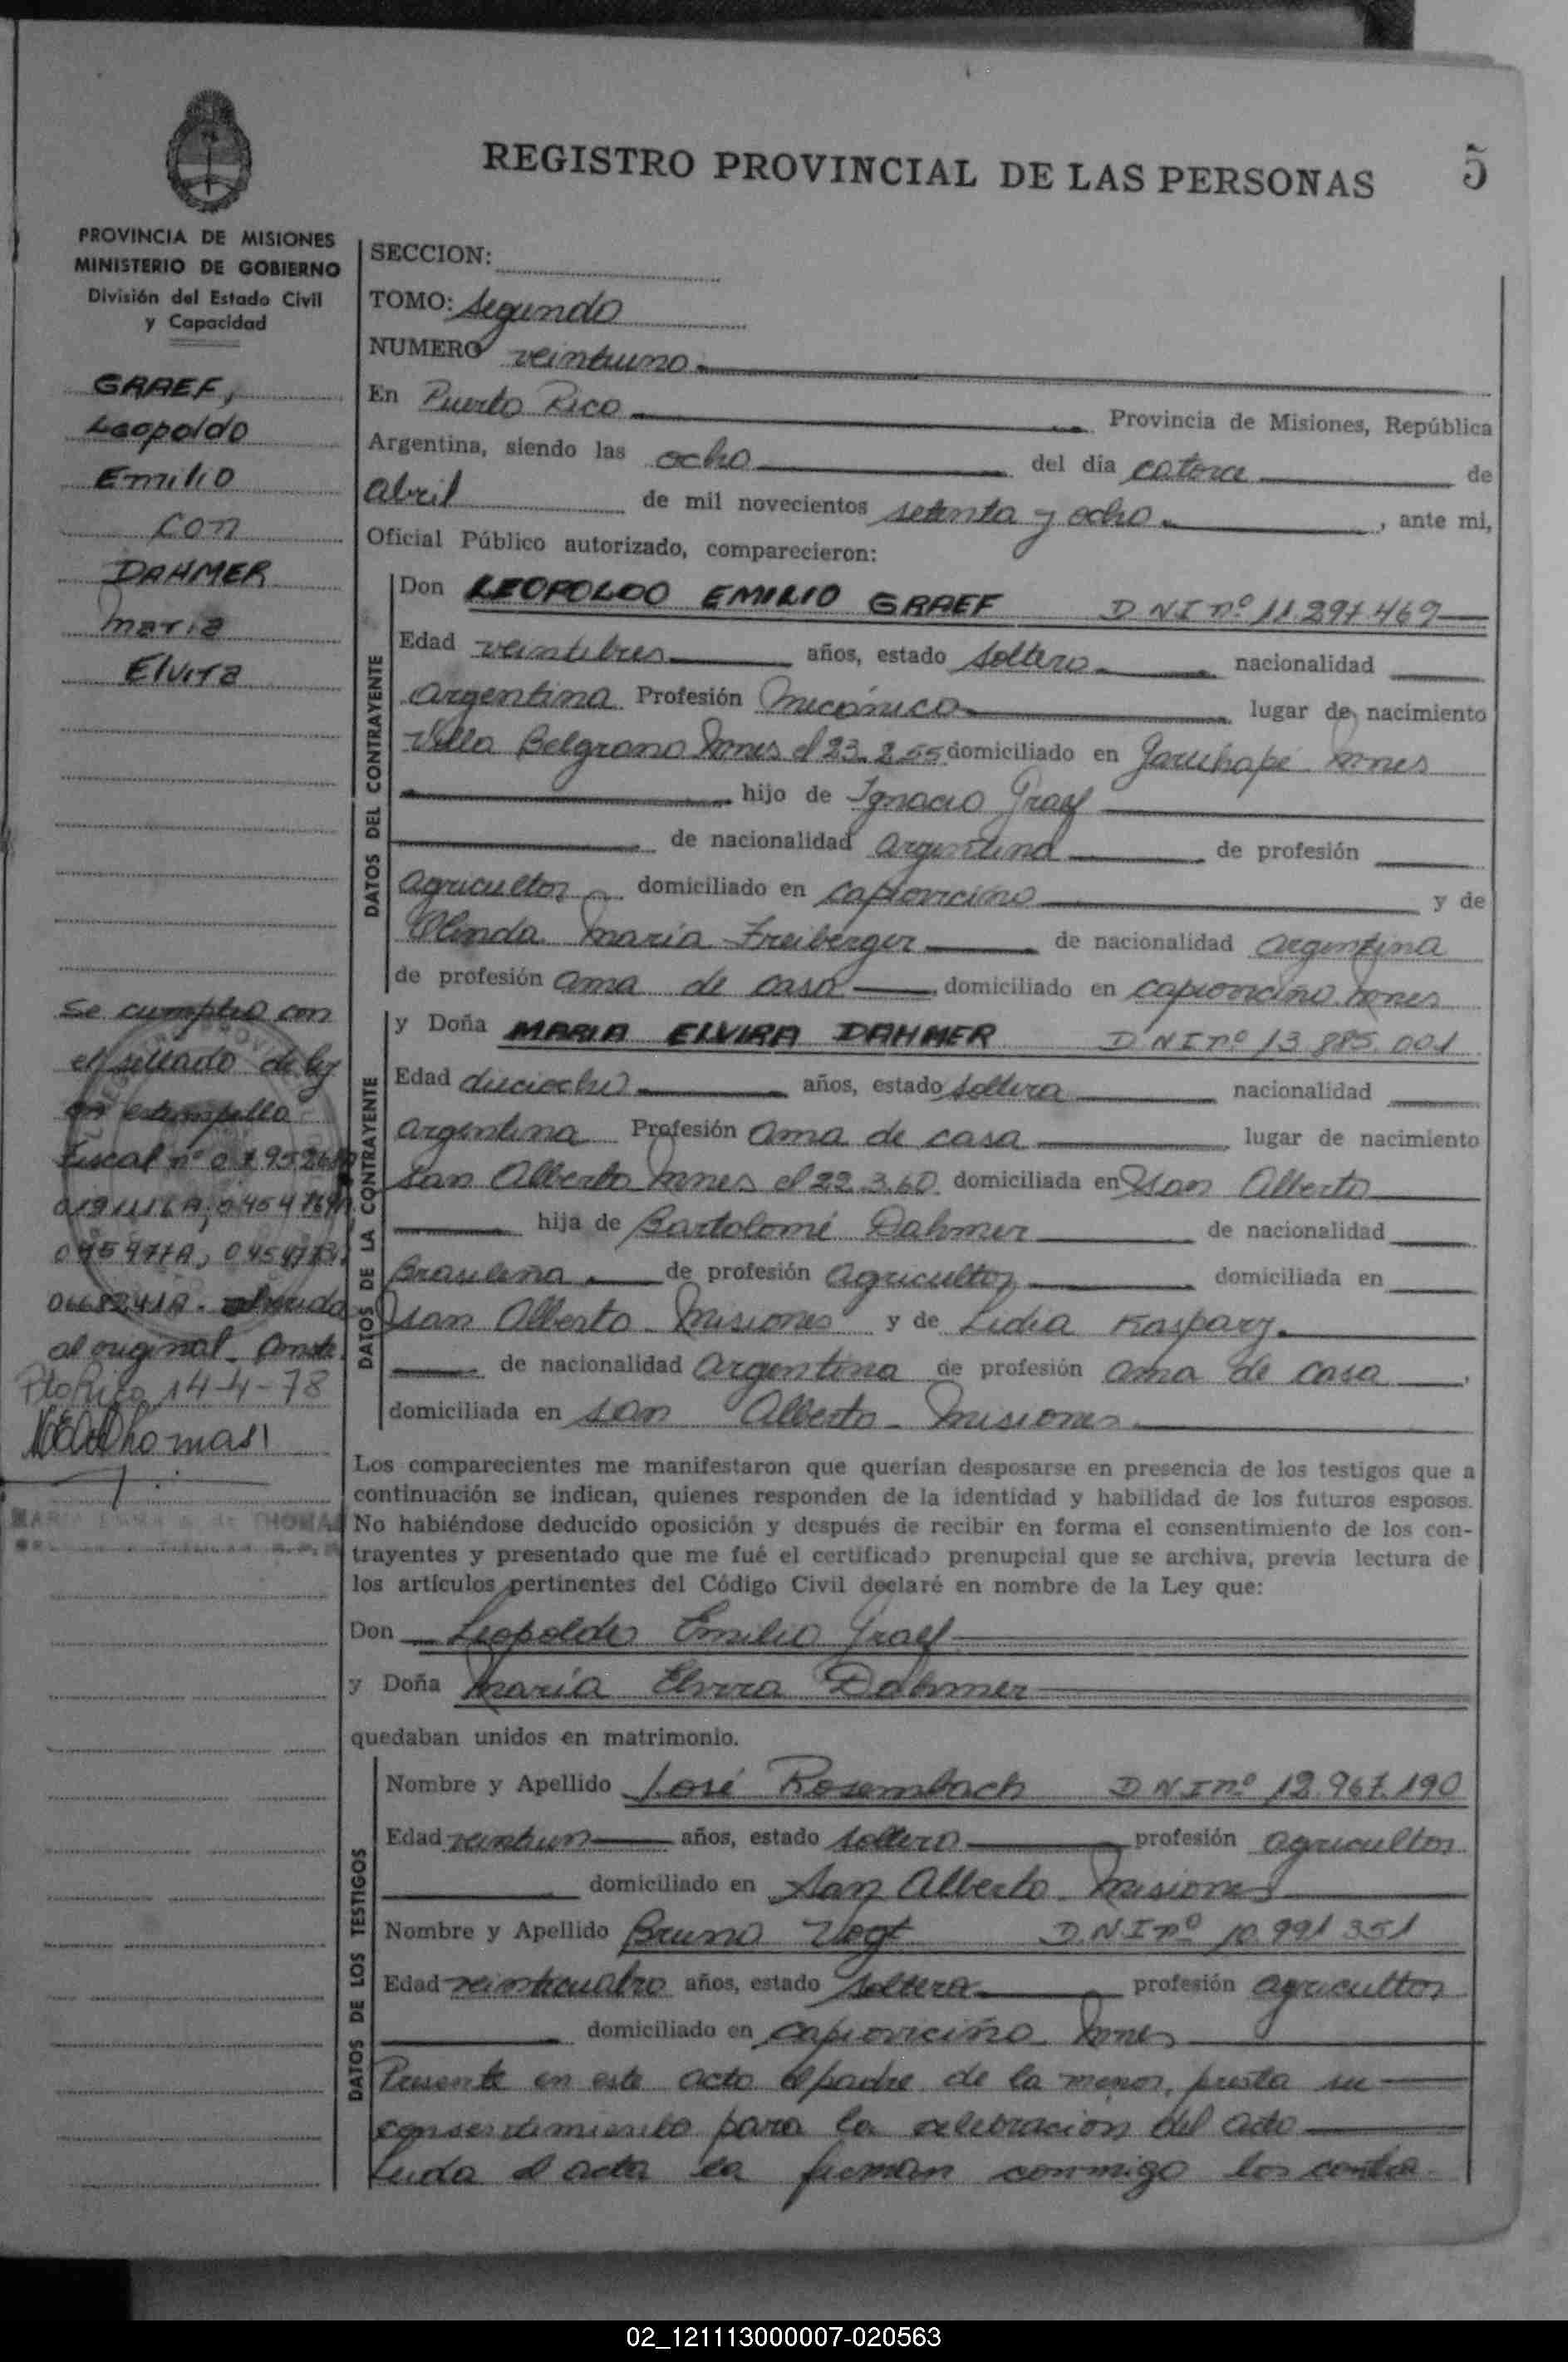 REGISTRO PROVINCIAL DE LAS PERSONAS
5
PROVINCIA DE MISIONES
MINISTERIO DE GOBIERNO
División del Estado Civil
y Capacidad
GRAEF,
Leopoldo
Emilio
con
DAHMER
maria
Elvira
Se cumplió con
el sellado de ley
en estampilla
fiscal nº
al original. Conste.
Pto Rico 14-4-78
THOMAS
SECCION:
TOMO: Segundo
NUMERO veintiuno
En Puerto Rico Provincia de Misiones, República
Argentina, siendo las ocho del día catorce de
abril de mil novecientos setenta y ocho , ante mi,
Oficial Público autorizado, comparecieron:
DATOS DEL CONTRAYENTE
Don LEOPOLDO EMILIO GRAEF D N I nº 11.297.469
Edad veintitres años, estado soltero nacionalidad
argentina Profesión mecánico lugar de nacimiento
Villa Belgrano Mnes el 23.2.55 domiciliado en Garuhapé Mnes
hijo de Ignacio Graef
de nacionalidad argentina de profesión
agricultor domiciliado en capioviciño y de
Olinda maría Freiberger de nacionalidad argentina
de profesión ama de casa domiciliado en capioviciño Mnes
DATOS DE LA CONTRAYENTE
y Doña MARIA ELVIRA DAHMER D N I nº 13.885.001
Edad dieciocho años, estado soltera nacionalidad
argentina Profesión ama de casa lugar de nacimiento
San Alberto Mnes el 22.3.60 domiciliada en San Alberto
hija de Bartolomé Dahmer de nacionalidad
Brasileña de profesión agricultor domiciliada en
San Alberto Misiones y de Lidia Kaspary
de nacionalidad argentina de profesión ama de casa ,
domiciliada en San Alberto - Misiones
Los comparecientes me manifestaron que querían desposarse en presencia de los testigos que a
continuación se indican, quienes responden de la identidad y habilidad de los futuros esposos.
No habiéndose deducido oposición y después de recibir en forma el consentimiento de los con-
trayentes y presentado que me fué el certificado prenupcial que se archiva, previa lectura de
los artículos pertinentes del Código Civil declaré en nombre de la Ley que:
Don Leopoldo Emilio Graef
y Doña María Elvira Dahmer
quedaban unidos en matrimonio.
DATOS DE LOS TESTIGOS
Nombre y Apellido José Rosembach D N I nº 12.967.190
Edad veintiun años, estado soltero profesión agricultor
domiciliado en San Alberto Misiones
Nombre y Apellido Bruno Vogt D.N.I nº 10.991 351
Edad veinticuatro años, estado soltero profesión agricultor
domiciliado en capioviciño Mnes
Presente en este acto el padre de la menor, presta su
consentimiento para la celebración del acto
Leida el acta la firman conmigo los contra
02_121113000007-020563